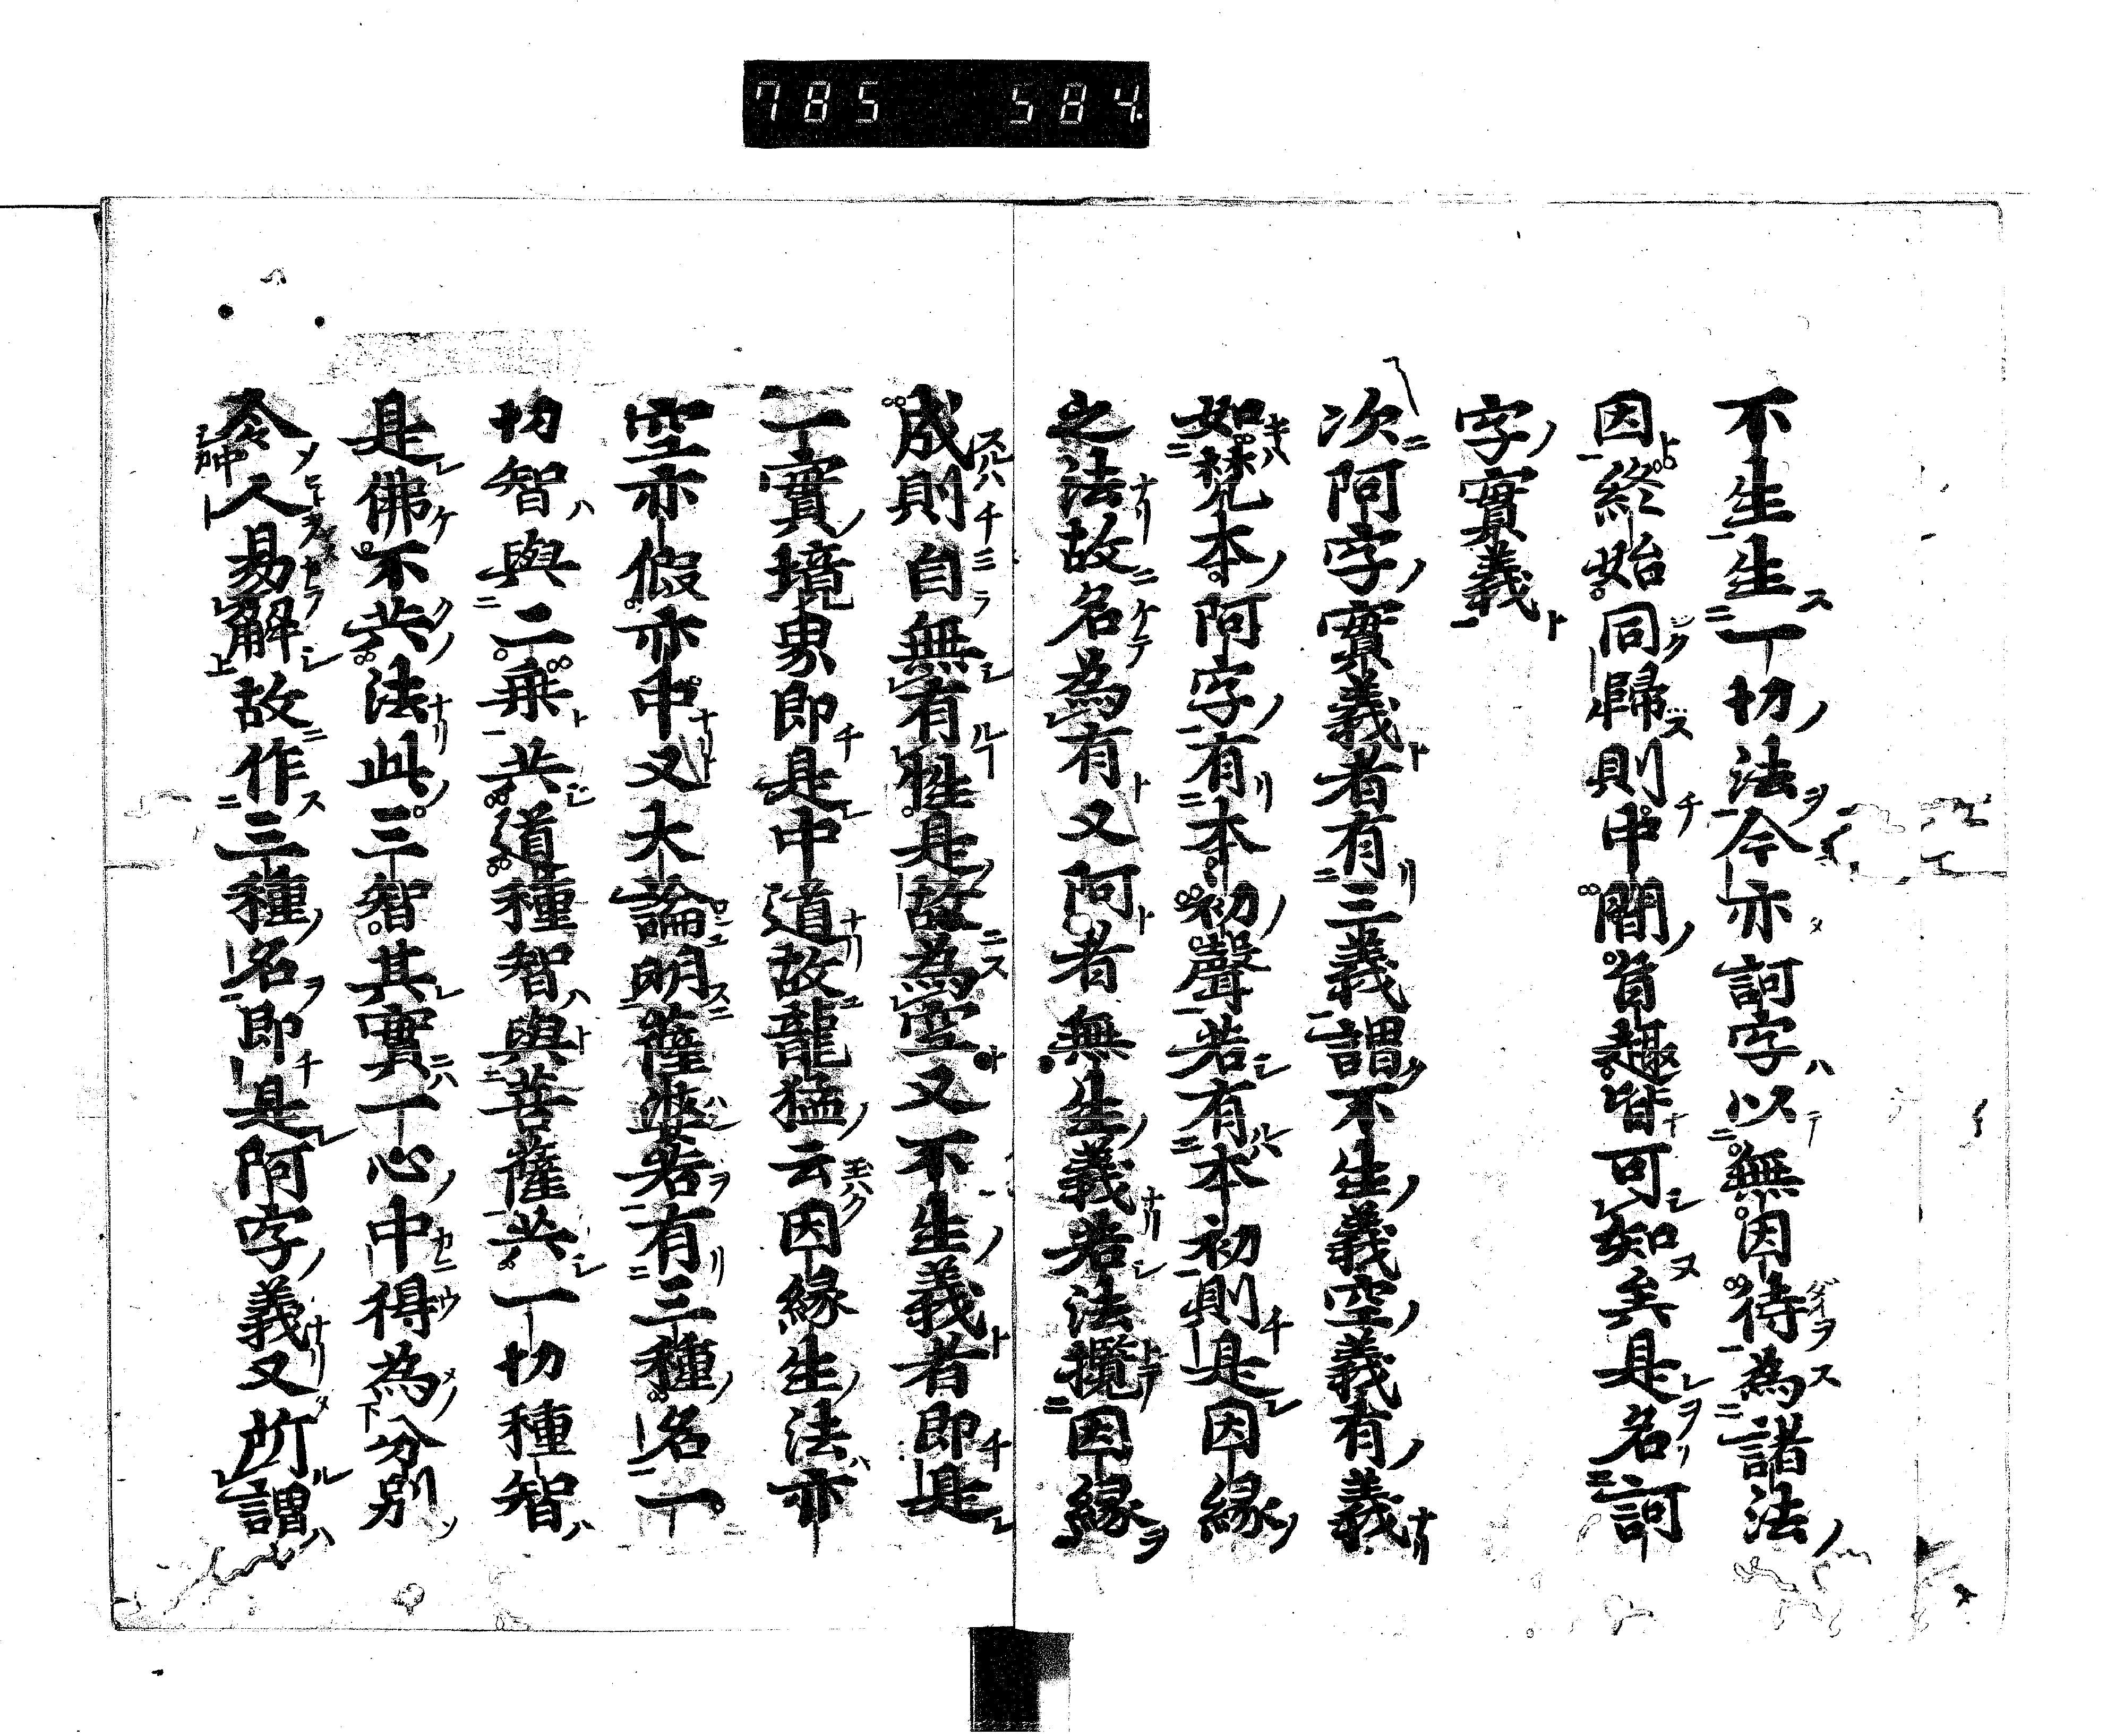 785 584
不生生一切法今亦訶字以無因待為諸法
因終始同歸則中間旨趣皆可知矣是名訶
字實義
次阿字實義者有三義謂不生義空義有義
如梵本阿字有本初聲若有本初則是因緣
之法故名為有又阿者無生義若法攬因緣
成則自無有性是故為空又不生義者即是
一實境界即是中道故龍猛云因緣生法亦
空亦假亦中又大論明薩婆若有三種名一
切智與二乘共道種智與菩薩共一切種智
是佛不共法此三智其實一心中得為分別
令人易解故作三種名即是阿字義又所謂